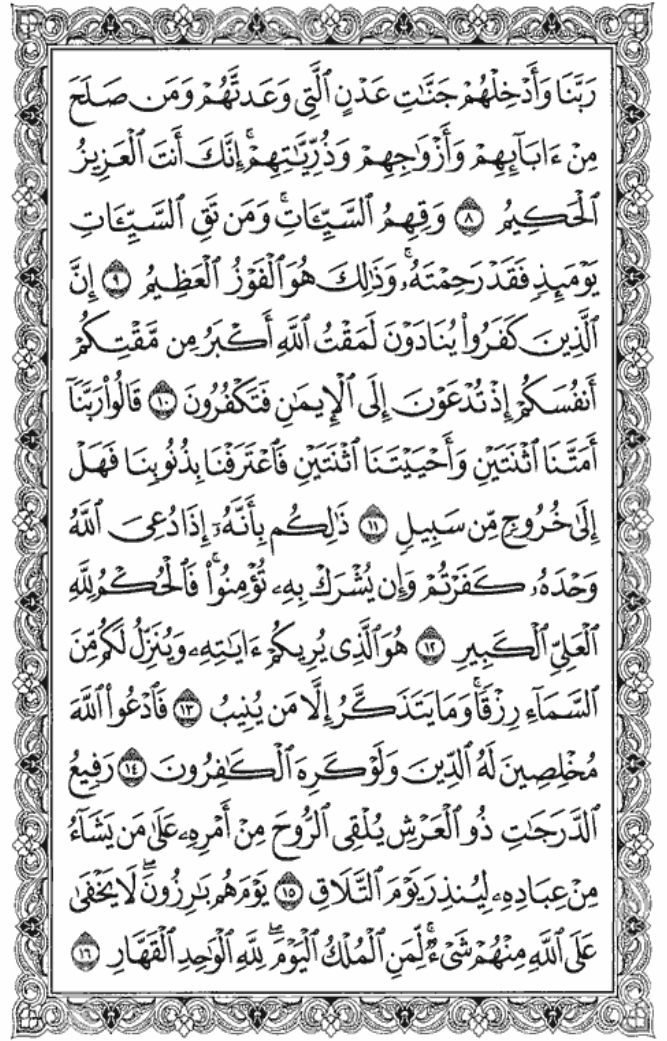 رَبَّنَا وَأَدْخِلْهُمْ جَنَّـٰتِ عَدْنٍ ٱلَّتِى وَعَدتَّهُمْ وَمَن صَلَحَ
مِنْ ءَابَآئِهِمْ وَأَزْوَٰجِهِمْ وَذُرِّيَّـٰتِهِمْ ۚ إِنَّكَ أَنتَ ٱلْعَزِيزُ
ٱلْحَكِيمُ ٨ وَقِهِمُ ٱلسَّيِّـَٔاتِ ۚ وَمَن تَقِ ٱلسَّيِّـَٔاتِ
يَوْمَئِذٍ فَقَدْ رَحِمْتَهُۥ ۚ وَذَٰلِكَ هُوَ ٱلْفَوْزُ ٱلْعَظِيمُ ٩ إِنَّ
ٱلَّذِينَ كَفَرُوا۟ يُنَادَوْنَ لَمَقْتُ ٱللَّهِ أَكْبَرُ مِن مَّقْتِكُمْ
أَنفُسَكُمْ إِذْ تُدْعَوْنَ إِلَى ٱلْإِيمَـٰنِ فَتَكْفُرُونَ ١٠ قَالُوا۟ رَبَّنَآ
أَمَتَّنَا ٱثْنَتَيْنِ وَأَحْيَيْتَنَا ٱثْنَتَيْنِ فَٱعْتَرَفْنَا بِذُنُوبِنَا فَهَلْ
إِلَىٰ خُرُوجٍ مِّن سَبِيلٍ ١١ ذَٰلِكُم بِأَنَّهُۥٓ إِذَا دُعِىَ ٱللَّهُ
وَحْدَهُۥ كَفَرْتُمْ وَإِن يُشْرَكْ بِهِۦ تُؤْمِنُوا۟ ۚ فَٱلْحُكْمُ لِلَّهِ
ٱلْعَلِىِّ ٱلْكَبِيرِ ١٢ هُوَ ٱلَّذِى يُرِيكُمْ ءَايَـٰتِهِۦ وَيُنَزِّلُ لَكُم مِّنَ
ٱلسَّمَآءِ رِزْقًا ۚ وَمَا يَتَذَكَّرُ إِلَّا مَن يُنِيبُ ١٣ فَٱدْعُوا۟ ٱللَّهَ
مُخْلِصِينَ لَهُ ٱلدِّينَ وَلَوْ كَرِهَ ٱلْكَـٰفِرُونَ ١٤ رَفِيعُ
ٱلدَّرَجَـٰتِ ذُو ٱلْعَرْشِ يُلْقِى ٱلرُّوحَ مِنْ أَمْرِهِۦ عَلَىٰ مَن يَشَآءُ
مِنْ عِبَادِهِۦ لِيُنذِرَ يَوْمَ ٱلتَّلَاقِ ١٥ يَوْمَ هُم بَـٰرِزُونَ ۖ لَا يَخْفَىٰ
عَلَى ٱللَّهِ مِنْهُمْ شَىْءٌ ۚ لِّمَنِ ٱلْمُلْكُ ٱلْيَوْمَ ۖ لِلَّهِ ٱلْوَٰحِدِ ٱلْقَهَّارِ ١٦